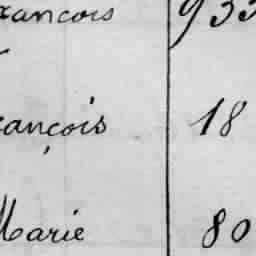 rancois 933
ançois 18
Marie 80